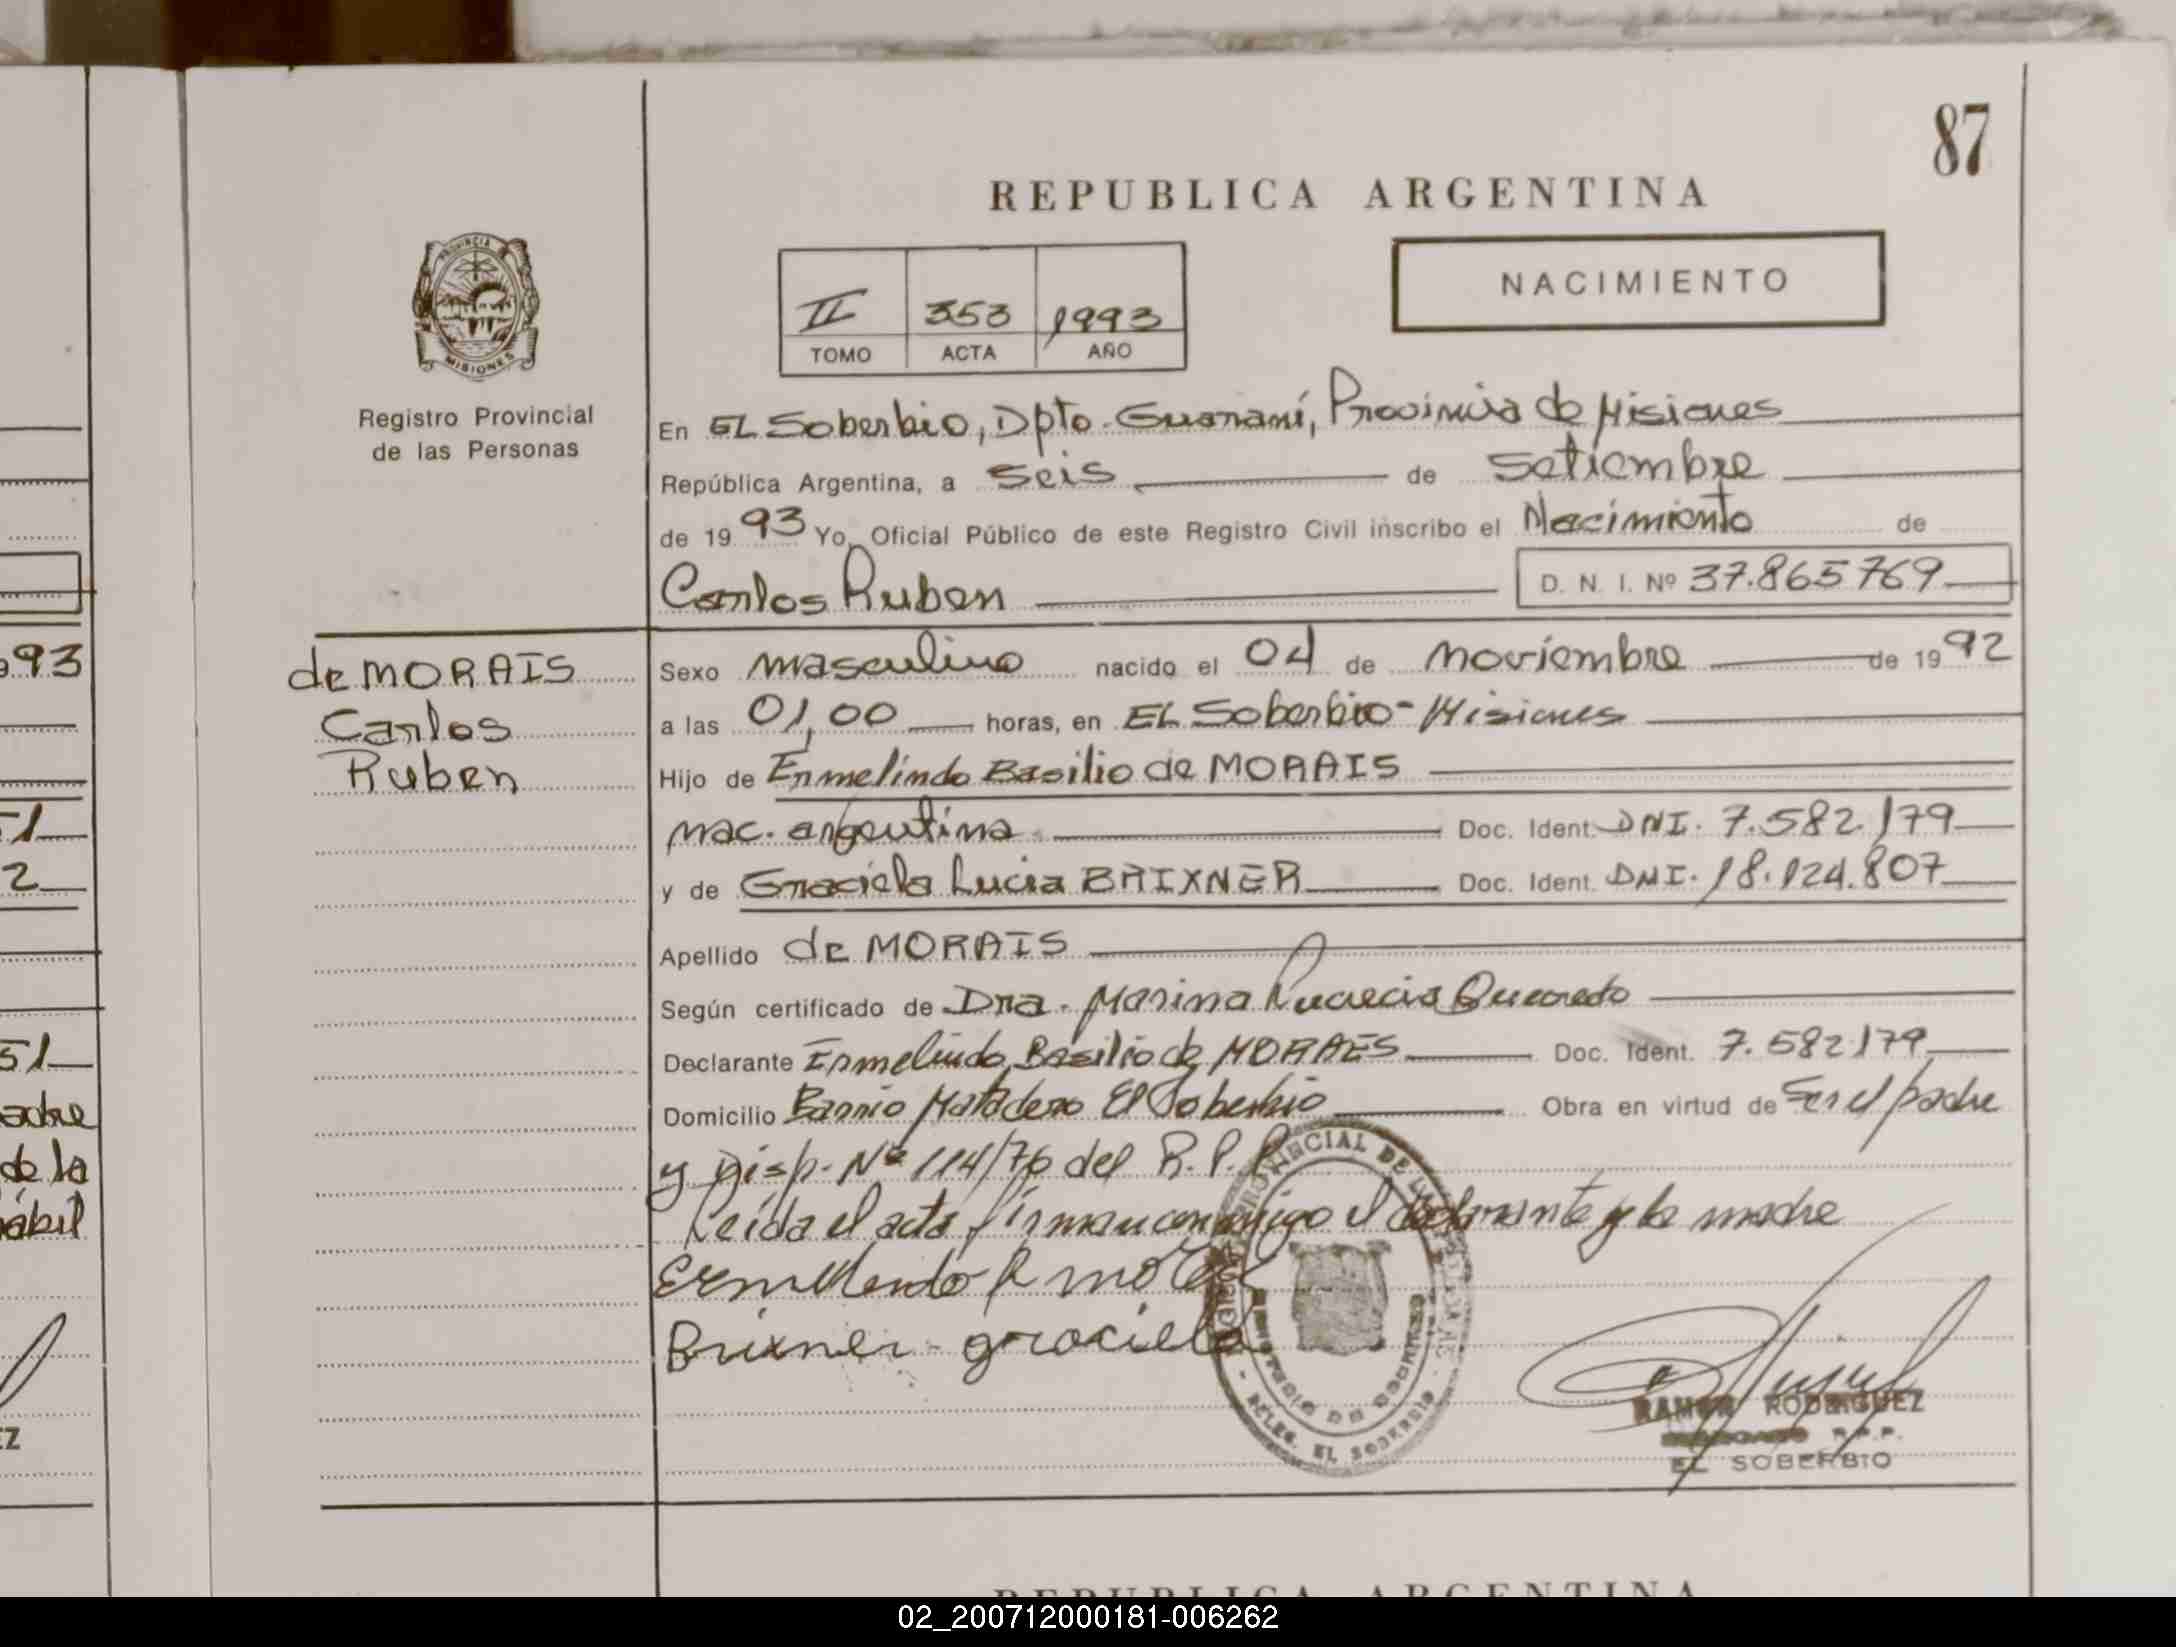 87
REPUBLICA ARGENTINA
NACIMIENTO
II 353 1993
TOMO ACTA AÑO
PROVINCIA DE
MISIONES
Registro Provincial
de las Personas
En EL Soberbio, Dpto. Guaraní, Provincia de Misiones
República Argentina, a seis de Setiembre
de 1993 Yo, Oficial Público de este Registro Civil inscribo el Nacimiento de
Carlos Ruben D. N. I. Nº 37.865769
de MORAIS
Carlos
Ruben
Sexo masculino nacido el 04 de noviembre de 1992
a las 01,00 horas, en EL Soberbio - Misiones
Hijo de Ermelindo Basilio de MORAIS
nac. argentina Doc. Ident. DNI. 7.582.179
y de Graciela Lucia BRIXNER Doc. Ident. DNI. 18.124.807
Apellido de MORAIS
Según certificado de Dra. Marina Lucrecia
Declarante Ermelindo Basilio de MORAES Doc. Ident. 7.582179
Domicilio Barrio Matadero El Soberbio Obra en virtud de ser el padre
y Disp. Nº 114/76 del R.P.P.
Leida el acta firman conmigo el declarante y la madre
Brixner graciela
DELEG. EL SOBERBIO
RAMON RODRIGUEZ
R.P.P.
EL SOBERBIO
REPUBLICA ARGENTINA
93
51
2
51
adre
de la
ábil
EZ
02_200712000181-006262